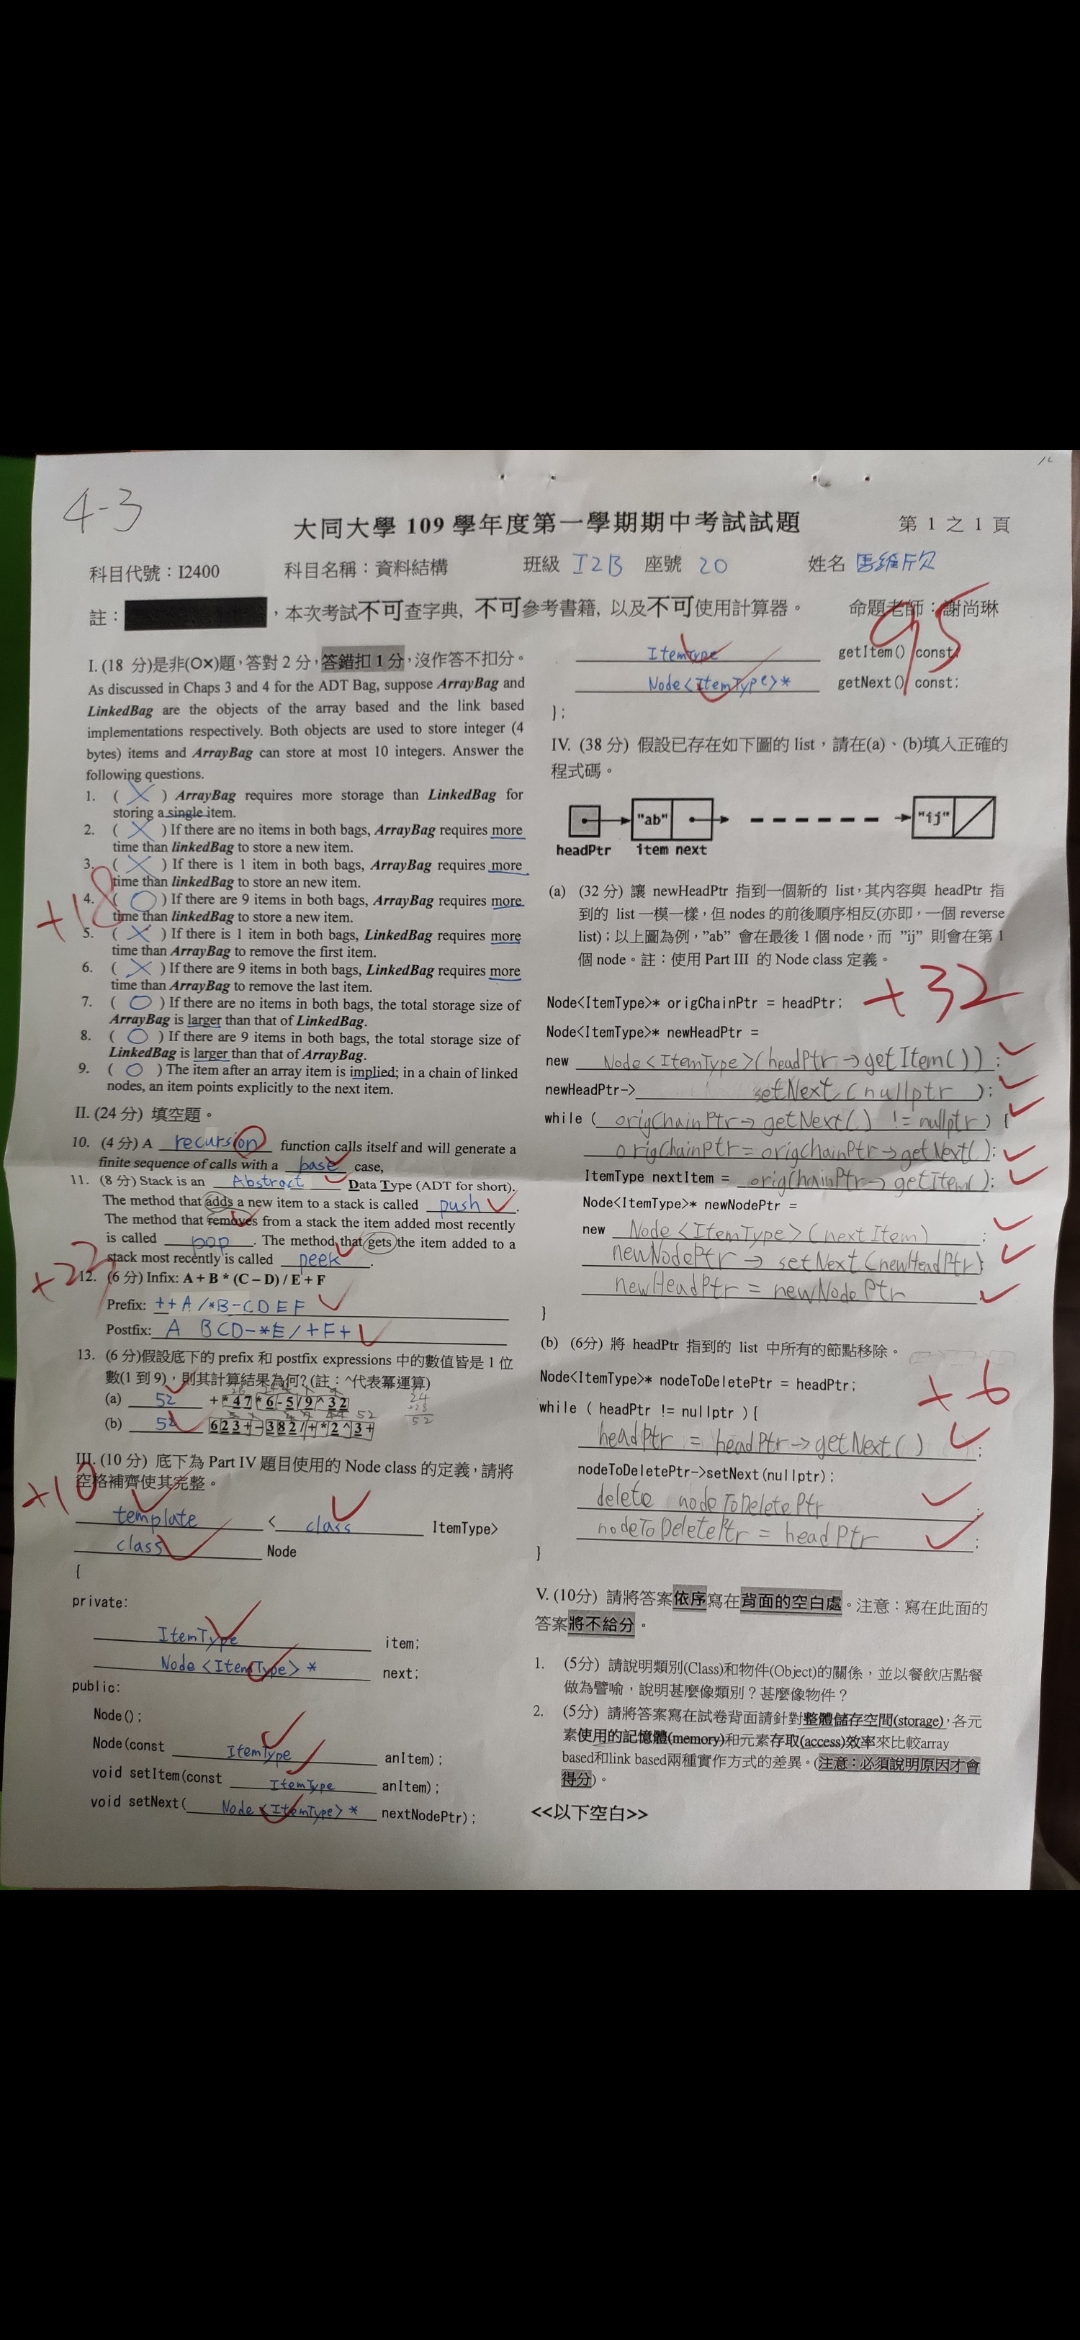 4-3
大同大學 109 學年度第一學期期中考試試題
第 1 之 1 頁
科目代號：I2400 科目名稱：資料結構 班級 I2B 座號 20 姓名
註： ，本次考試不可查字典, 不可參考書籍, 以及不可使用計算器。 命題老師：謝尚琳
95
I. (18 分)是非(O×)題，答對 2 分，答錯扣 1 分，沒作答不扣分。
As discussed in Chaps 3 and 4 for the ADT Bag, suppose ArrayBag and
LinkedBag are the objects of the array based and the link based
implementations respectively. Both objects are used to store integer (4
bytes) items and ArrayBag can store at most 10 integers. Answer the
following questions.
1. ( X ) ArrayBag requires more storage than LinkedBag for
storing a single item.
2. ( X ) If there are no items in both bags, ArrayBag requires more
time than linkedBag to store a new item.
3. ( X ) If there is 1 item in both bags, ArrayBag requires more
time than linkedBag to store an new item.
4. ( O ) If there are 9 items in both bags, ArrayBag requires more
time than linkedBag to store a new item.
+18
5. ( X ) If there is 1 item in both bags, LinkedBag requires more
time than ArrayBag to remove the first item.
6. ( X ) If there are 9 items in both bags, LinkedBag requires more
time than ArrayBag to remove the last item.
7. ( O ) If there are no items in both bags, the total storage size of
ArrayBag is larger than that of LinkedBag.
8. ( O ) If there are 9 items in both bags, the total storage size of
LinkedBag is larger than that of ArrayBag.
9. ( O ) The item after an array item is implied; in a chain of linked
nodes, an item points explicitly to the next item.
II. (24 分) 填空題。
10. (4 分) A recursion function calls itself and will generate a
finite sequence of calls with a base case,
11. (8 分) Stack is an Abstract Data Type (ADT for short).
The method that adds a new item to a stack is called push.
The method that removes from a stack the item added most recently
is called pop. The method that gets the item added to a
stack most recently is called peek.
12. (6 分) Infix: A + B * (C – D) / E + F
Prefix: ++A/*B-CDEF
Postfix: A BCD-*E/+F+
13. (6 分)假設底下的 prefix 和 postfix expressions 中的數值皆是 1 位
數(1 到 9)，則其計算結果為何? (註：^代表冪運算)
(a) 52 + * 4 7 * 6 - 5 / 9 ^ 3 2
(b) 52 6 2 3 + - 3 8 2 / + * 2 ^ 3 +
III. (10 分) 底下為 Part IV 題目使用的 Node class 的定義，請將
空格補齊使其完整。
+10
template < class ItemType>
class Node
{
private:
ItemType item;
Node<ItemType>* next;
public:
Node();
Node(const ItemType anItem);
void setItem(const ItemType anItem);
void setNext( Node<ItemType>* nextNodePtr);
ItemType getItem() const;
Node<ItemType>* getNext() const;
};
IV. (38 分) 假設已存在如下圖的 list，請在(a)、(b)填入正確的
程式碼。
"ab" "ij"
headPtr item next
(a) (32 分) 讓 newHeadPtr 指到一個新的 list，其內容與 headPtr 指
到的 list 一模一樣，但 nodes 的前後順序相反(亦即，一個 reverse
list)；以上圖為例，"ab" 會在最後 1 個 node，而 "ij" 則會在第 1
個 node。註：使用 Part III 的 Node class 定義。
+32
Node<ItemType>* origChainPtr = headPtr;
Node<ItemType>* newHeadPtr =
new Node<ItemType>(headPtr→getItem()) ;
newHeadPtr-> setNext(nullptr );
while ( origChainPtr→getNext() != nullptr ) {
origChainPtr = origChainPtr→getNext();
ItemType nextItem = origChainPtr→getItem();
Node<ItemType>* newNodePtr =
new Node<ItemType>(nextItem) ;
newNodePtr → setNext(newHeadPtr);
newHeadPtr = newNodePtr
}
(b) (6分) 將 headPtr 指到的 list 中所有的節點移除。
+6
Node<ItemType>* nodeToDeletePtr = headPtr;
while ( headPtr != nullptr ) {
headPtr = headPtr→getNext() ;
nodeToDeletePtr->setNext(nullptr);
delete nodeToDeletePtr ;
nodeToDeletePtr = headPtr ;
}
V. (10分) 請將答案依序寫在背面的空白處。注意：寫在此面的
答案將不給分。
1. (5分) 請說明類別(Class)和物件(Object)的關係，並以餐飲店點餐
做為譬喻，說明甚麼像類別？甚麼像物件？
2. (5分) 請將答案寫在試卷背面請針對整體儲存空間(storage)，各元
素使用的記憶體(memory)和元素存取(access)效率來比較array
based和link based兩種實作方式的差異。(注意：必須說明原因才會
得分)。
<<以下空白>>